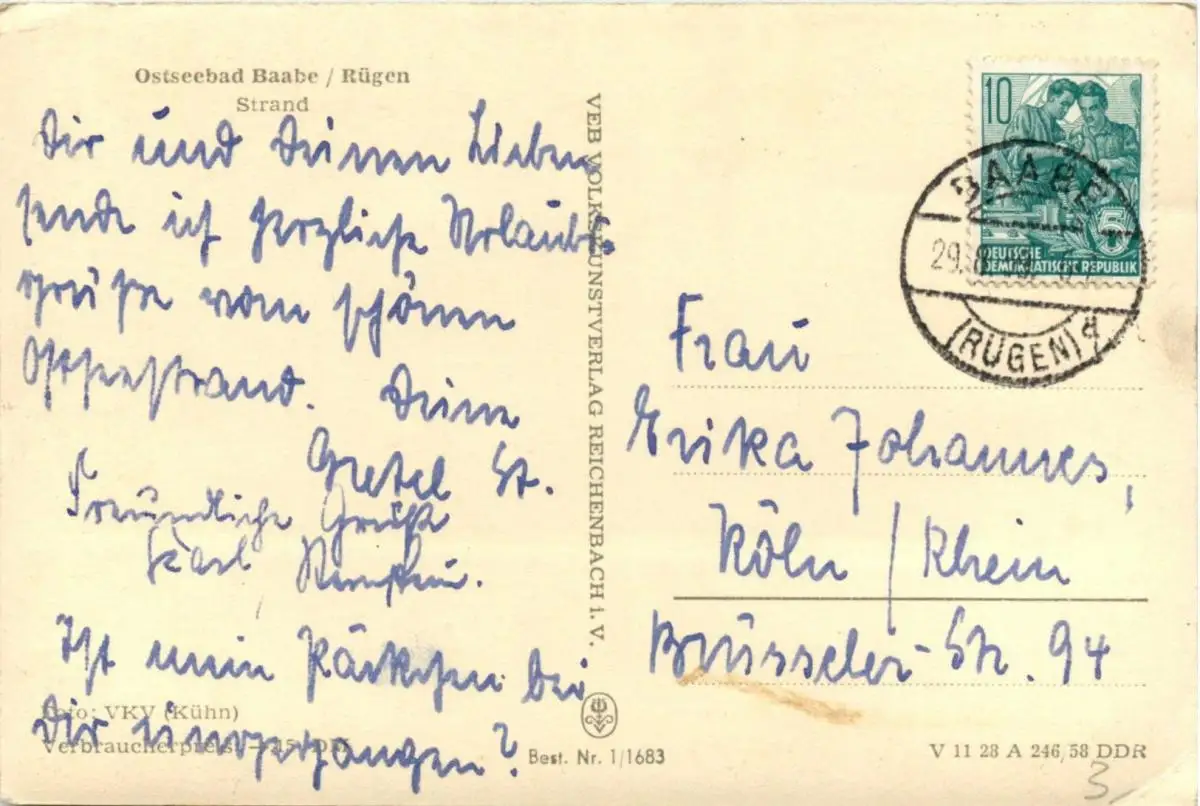 Ostseebad Baabe / Rügen
Strand
Dir und Deinen Lieben
sende ich herzliche Urlaubs-
grüße vom schönen
Ostseestrand. Deine
Gretel St.
Freundliche Grüße
Karl
Ist mein Päckchen bei
Dir eingegangen?
Foto: VKV (Kühn)
Verbraucherpreis
VEB VOLKSKUNSTVERLAG REICHENBACH i. V.
Best. Nr. 1/1683
10
DEUTSCHE
DEMOKRATISCHE REPUBLIK
5
BAABE
29.
(RÜGEN) a
Frau
Erika Johannes,
Köln / Rhein
Brüsseler-Str. 94
V 11 28 A 246/58 DDR
3